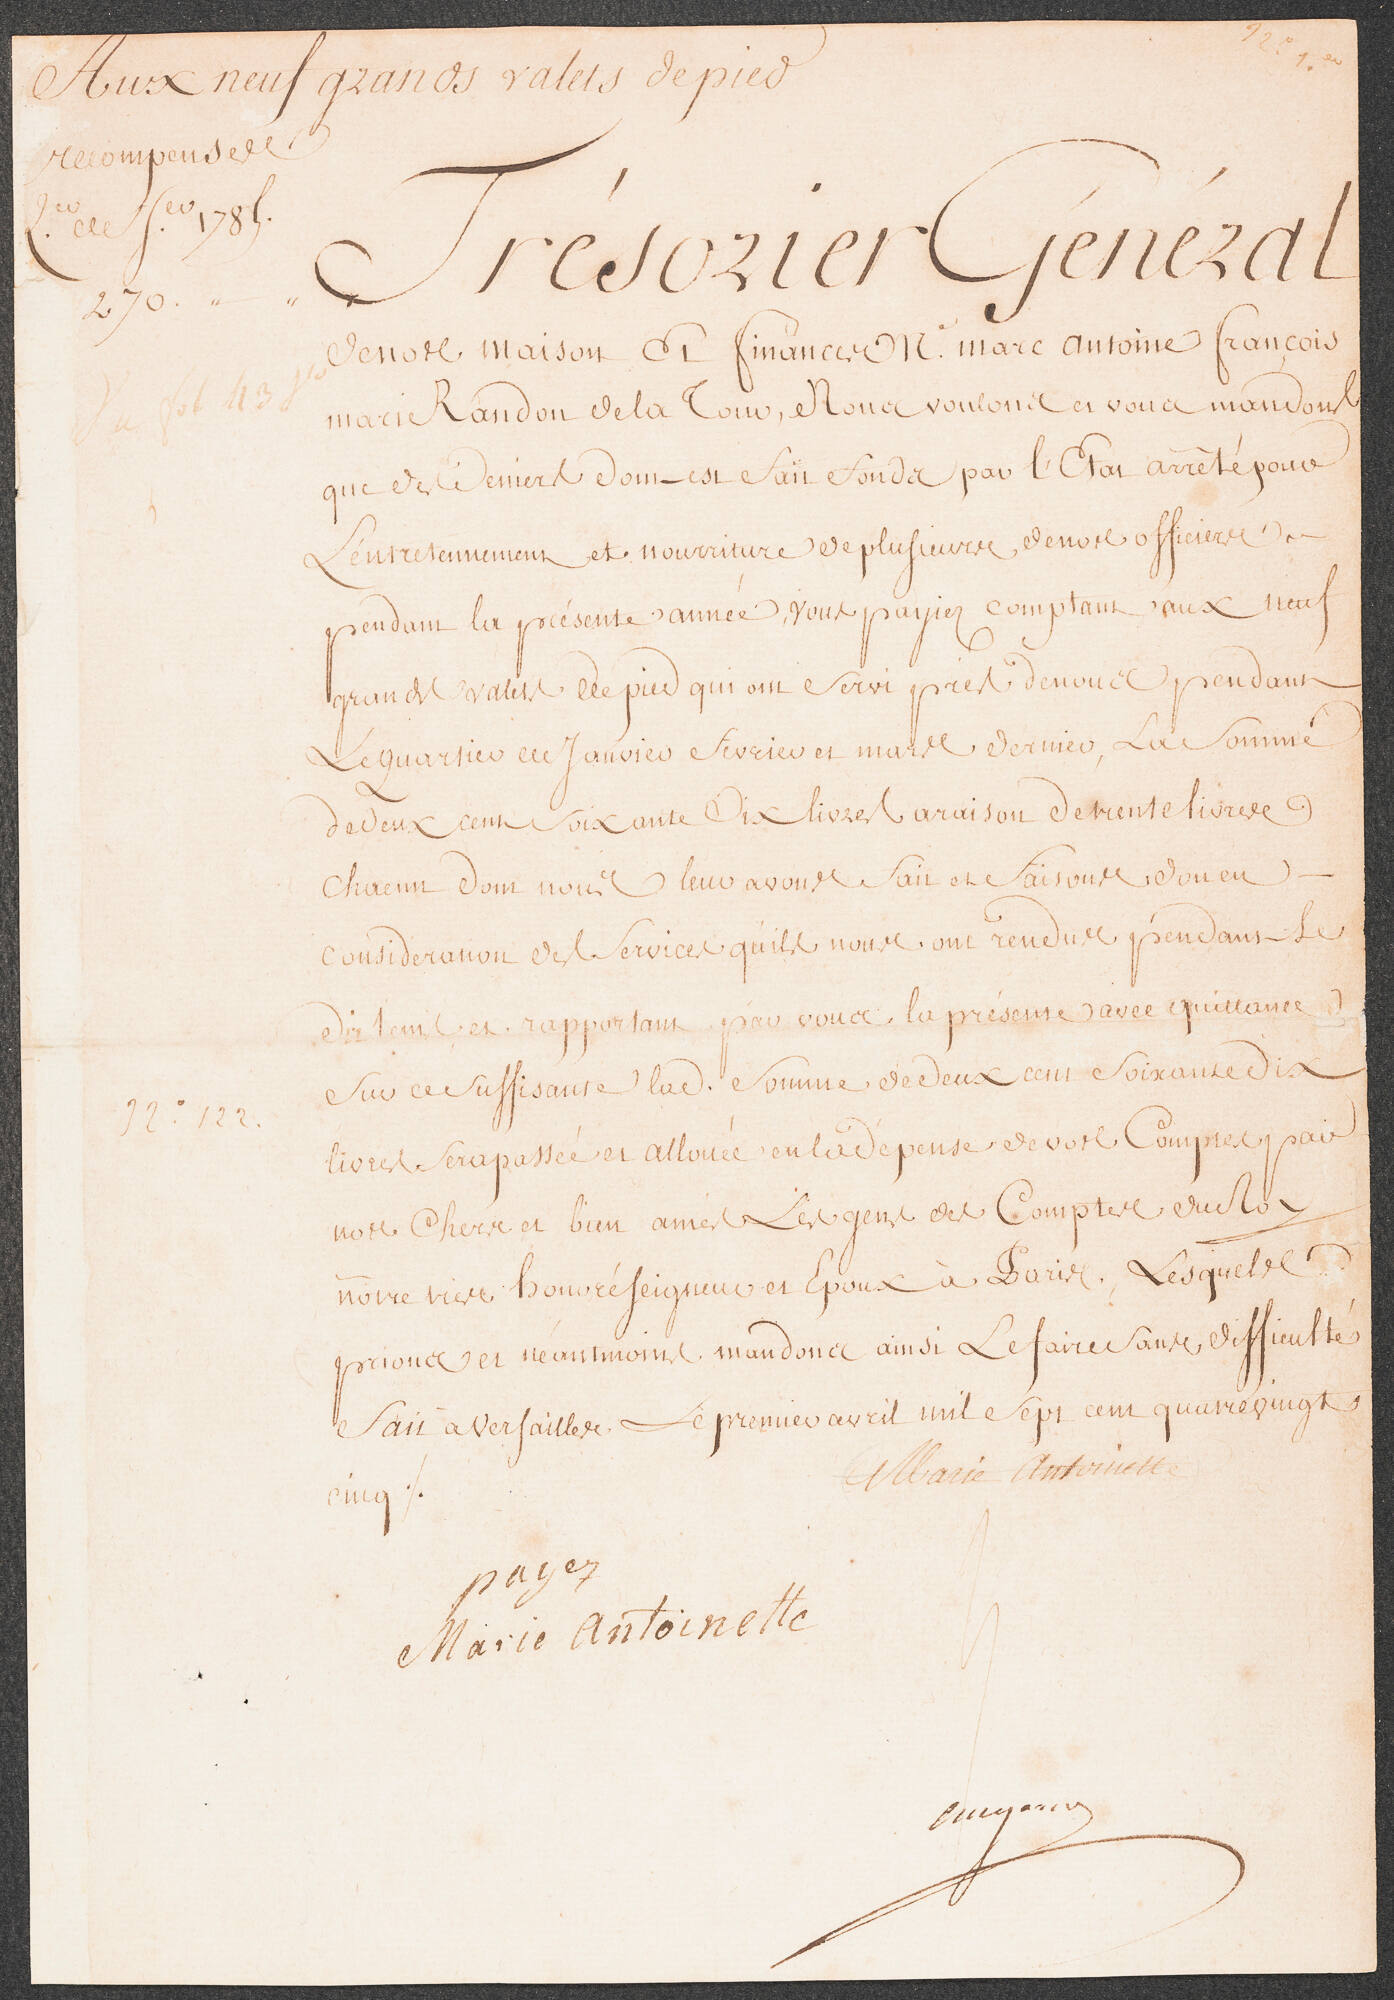 N.° 1.er
Aux neuf grands valets de pied
recompense de
q.er de J.er 1785.
270. " — "
Trésorier Général
de nos maison Et finances M.e marc antoine françois
marie Randon de la Tour, Nous voulons et vous mandons
que des deniers dont est fait fonds par l'Etat arrêté pour
L'entretennement et nourriture de plusieurs de nos officiers
pendant la présente année, vous payiez comptant aux neuf
grands valets de pied qui ont servi près de nous pendant
Le quartier de Janvier fevrier et mars dernier, La somme
de deux cent soixante Dix livres a raison de trente livres
chacun dont nous leur avons fait et faisons don en
consideration des services qu'ils nous ont rendus pendant Le
dit tems et rapportant par vous la présente avec quittance
sur ce suffisante lad. somme de deux cent soixante dix
N.° 122.
livres sera passée et allouée en la dépense de vos Comptes par
nos Chers et bien amés Les gens des Comptes du Roy
notre très honoré seigneur et Epoux à Paris, Lesquels
prions et néantmoins mandons ainsi Le faire sans difficulté
fait a Versailles Le premier avril mil sept cent quatre vingt
cinq ./.
Marie Antoinette
payez
Marie Antoinette